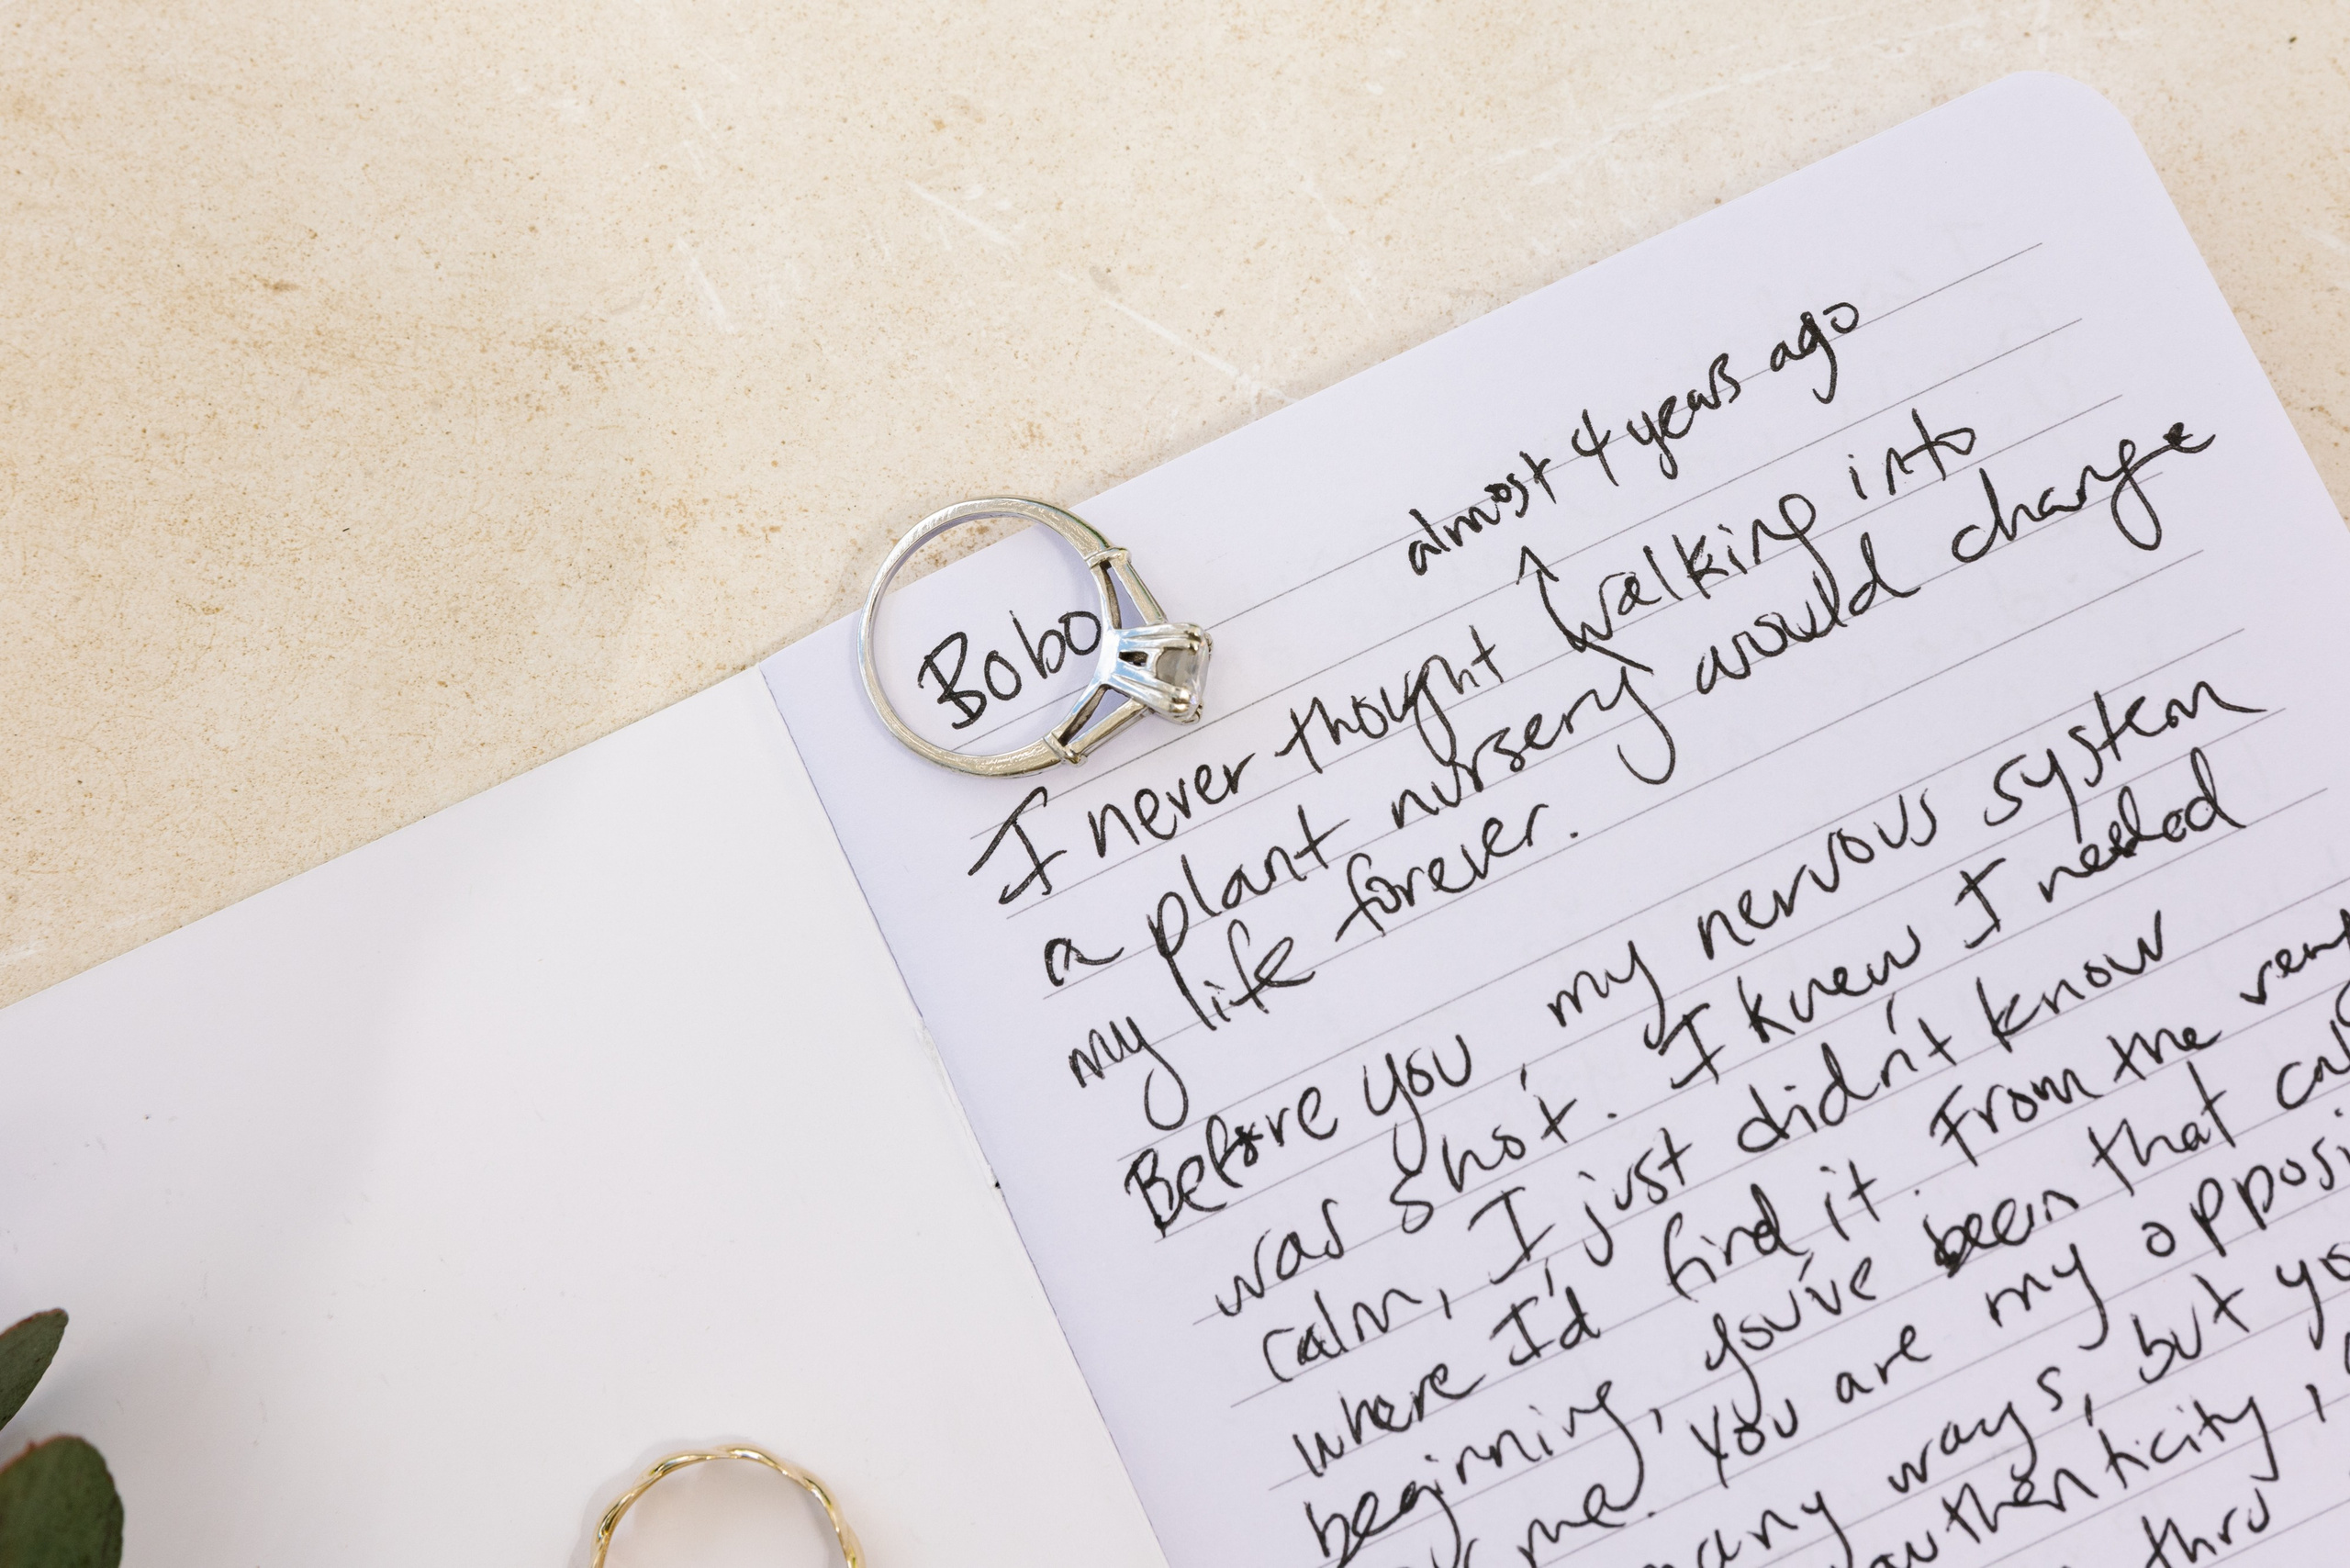 Bobo
almost 4 years ago
I never thought ↑ walking into
a plant nursery would change
my life forever.
Before you, my nervous system
was shot. I knew I needed
calm, I just didn't know
where I'd find it. From the
beginning, you've been that
me. You are my
many ways, but
authenticity,
thru